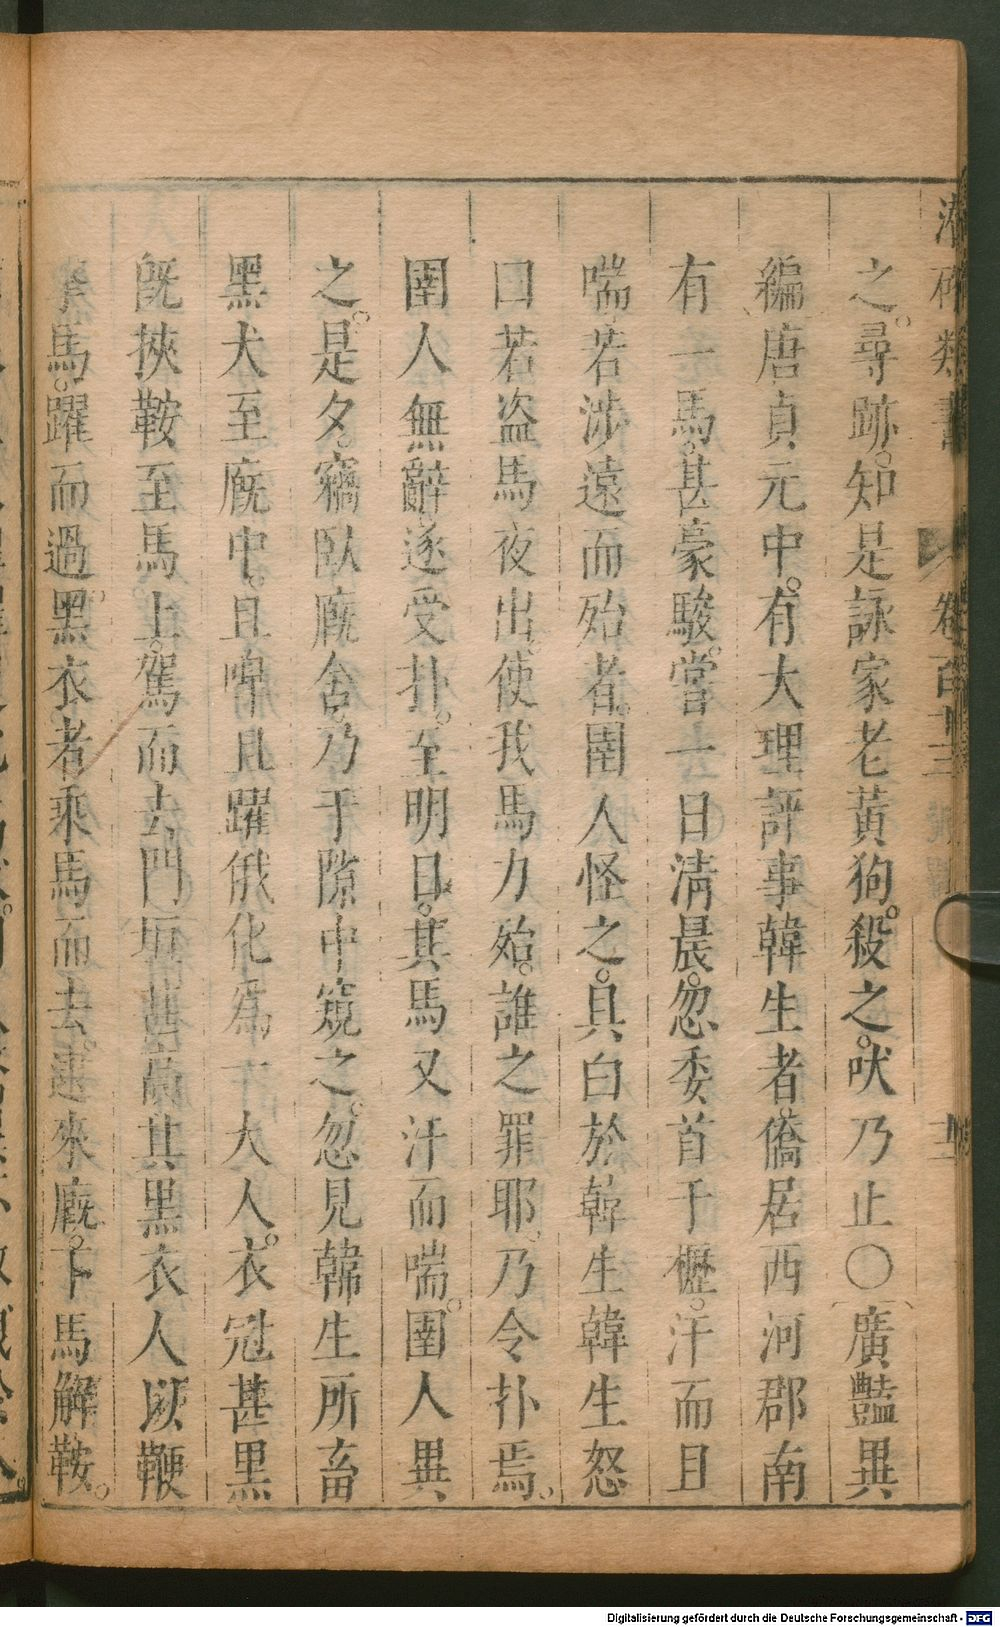 之。尋跡。知是詠家老黃狗。殺之。吠乃止〇廣豔異
編唐貞元中。有大理評事韓生者。僑居西河郡南
有一馬。甚豪駿。嘗一日清晨。忽委首于櫪。汗而且
喘。若涉遠而殆者。圉人怪之。具白於韓生韓生怒
曰若盜馬夜出。使我馬力殆。誰之罪耶。乃令扑焉。
圉人無辭遂受扑。至明日。其馬又汗而喘。圉人異
之。是夕。竊臥廐舍。乃于隙中窺之。忽見韓生所畜
黑犬至廐中。且嘷且躍俄化為一大人。衣冠甚黑
既挾鞍至馬上。駕而去門垣甚高其黑衣人以鞭
擊馬。躍而過。黑衣。者乘馬而去。還來廐。下馬解鞍。
類書 卷百十三
Digitalisierung gefördert durch die Deutsche Forschungsgemeinschaft - DFG